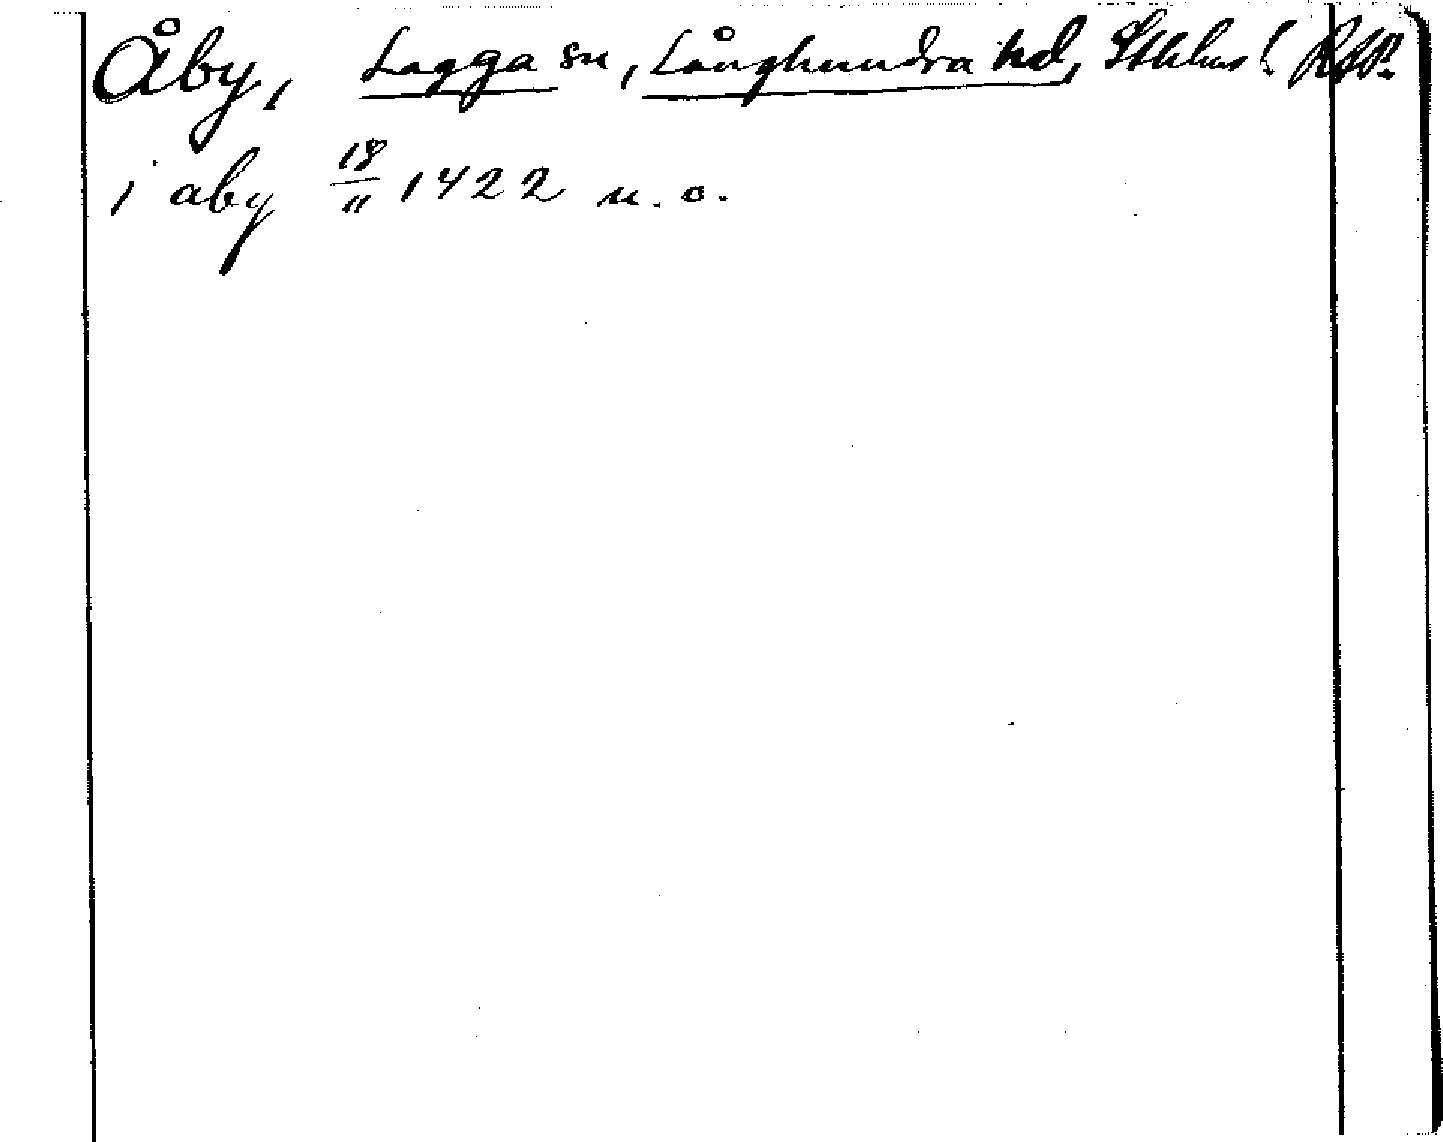 Åby, Lagga sn, Långhundra hd, Sthlms l. RAP.
i aby 18/11 1422 u. o.